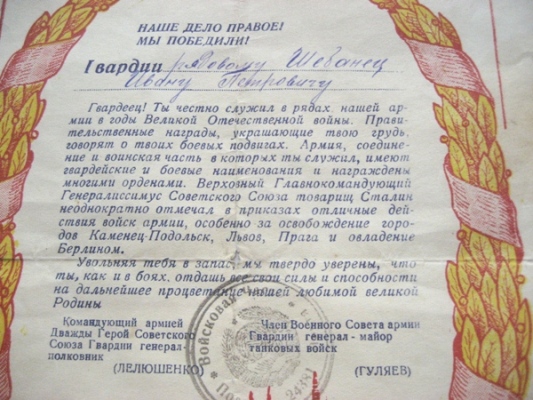 НАШЕ ДЕЛО ПРАВОЕ!
МЫ ПОБЕДИЛИ!
Гвардии рядовому Шебанец
Ивану Петровичу
Гвардеец! Ты честно служил в рядах нашей ар-
мии в годы Великой Отечественной войны. Прави-
тельственные награды, украшающие твою грудь,
говорят о твоих боевых подвигах. Армия, соедине-
ние и воинская часть в которых ты служил, имеют
гвардейские и боевые наименования и награждены
многими орденами. Верховный Главнокомандующий
Генералиссимус Советского Союза товарищ Сталин
неоднократно отмечал в приказах отличные дей-
ствия войск армии, особенно за освобождение горо-
дов Каменец-Подольск, Львов, Прага и овладение
Берлином.
Увольняя тебя в запас, мы твердо уверены, что
ты, как и в боях, отдашь все свои силы и способности
на дальнейшее процветание нашей любимой великой
Родины
Командующий армией
Дважды Герой Советского
Союза Гвардии генерал-
полковник
(ЛЕЛЮШЕНКО)
Член Военного Совета армии
Гвардии генерал-майор
танковых войск
(ГУЛЯЕВ)
Войсковая
24381